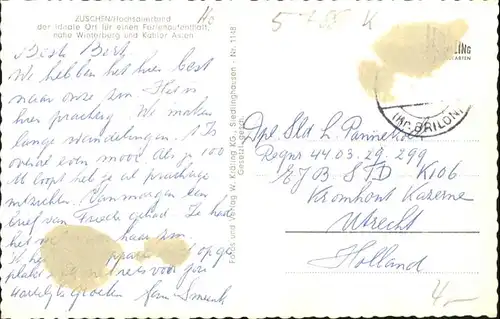 ZÜSCHEN/Hochsauerland
der ideale Ort für einen Ferienaufenthalt,
nahe Winterberg und Kahler Asten
Beste Bert
We hebben het hier best
naar onze zin. Het is
hier prachtig. We maken
lange wandelingen. 't Is
overal even mooi. Als je 100
M loopt heb je al prachtige
uitzichten. Van morgen een
brief van gehad. Ze had
het naar haar zin.
op ge
plakt niets voor jou
Hartelijke groeten
Fotos und Verlag W. Kräling KG., Siedlinghausen - Nr. 1148
Gesetzl. gesch.
5
K
LING
KARTEN
(KR. BRILON)
Dpl Sld L. Pannekoek
Regnr 44.03.29.299
STD K106
Kromhout Kazerne
Utrecht
Holland
4,-